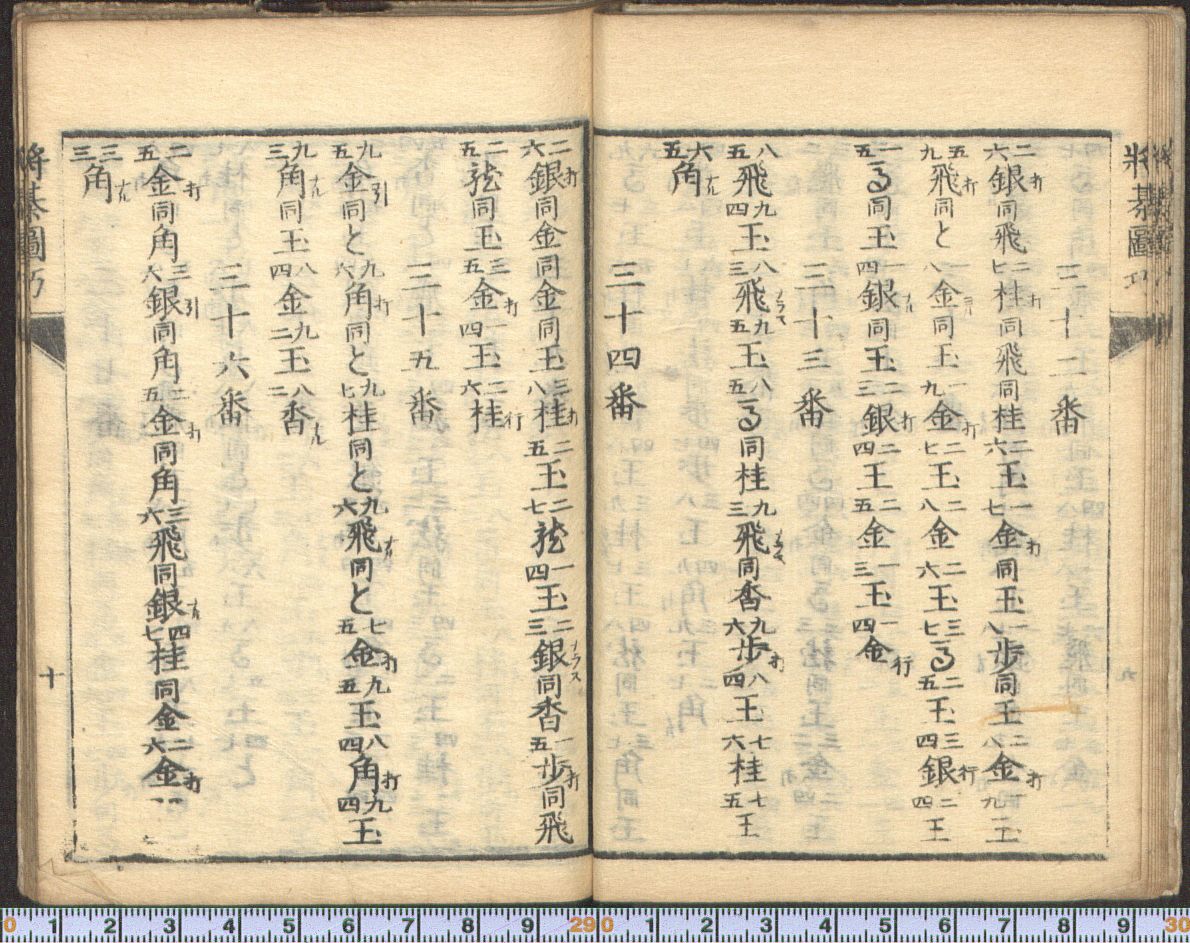 將棊圖巧
三十二番
二六銀打同飛二七桂打同飛同桂二六玉一七金打同玉一八歩同玉二八金打一九玉
五九飛打同と一八金ヨル同玉一九金打二七玉二八金二六玉三七馬二五玉三四銀行二四王
一五馬同玉一四銀ナル同玉二三銀打二四王二五金一三玉一四金行
三十三番
八五飛九四玉八三飛ナラズ九五玉八五馬同桂九三飛ナラズ同香九六歩打八四玉七六桂七五王
六五角ナル
三十四番
九
二六銀打同金同金同玉三八桂打二五玉二七龍一四玉二三銀ナラズ同香一五歩打同飛
二五龍同玉三五金打一四玉二六桂行
三十五番
九五金引同と九六角打同と九七桂同と九六飛ナル同と七五金打九五玉八四角打九四玉
九三角ナル同玉八四金九二玉八二香ナル
三十六番
二五金打同角三六銀引同角二五金打同角三六飛同銀ナル四七桂同金二六金打
三三角ナル
將棊圖巧
十